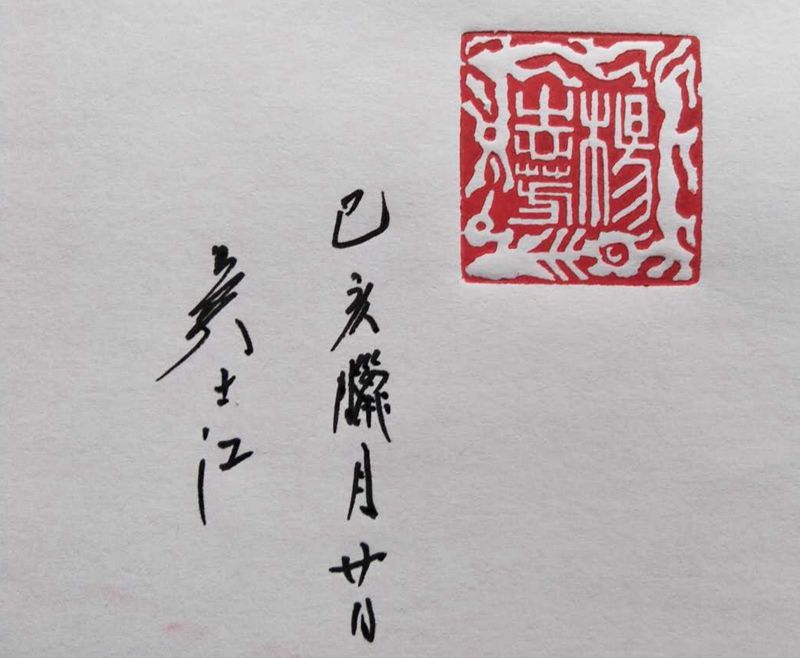 楊
己亥臘月廿日
吳士江